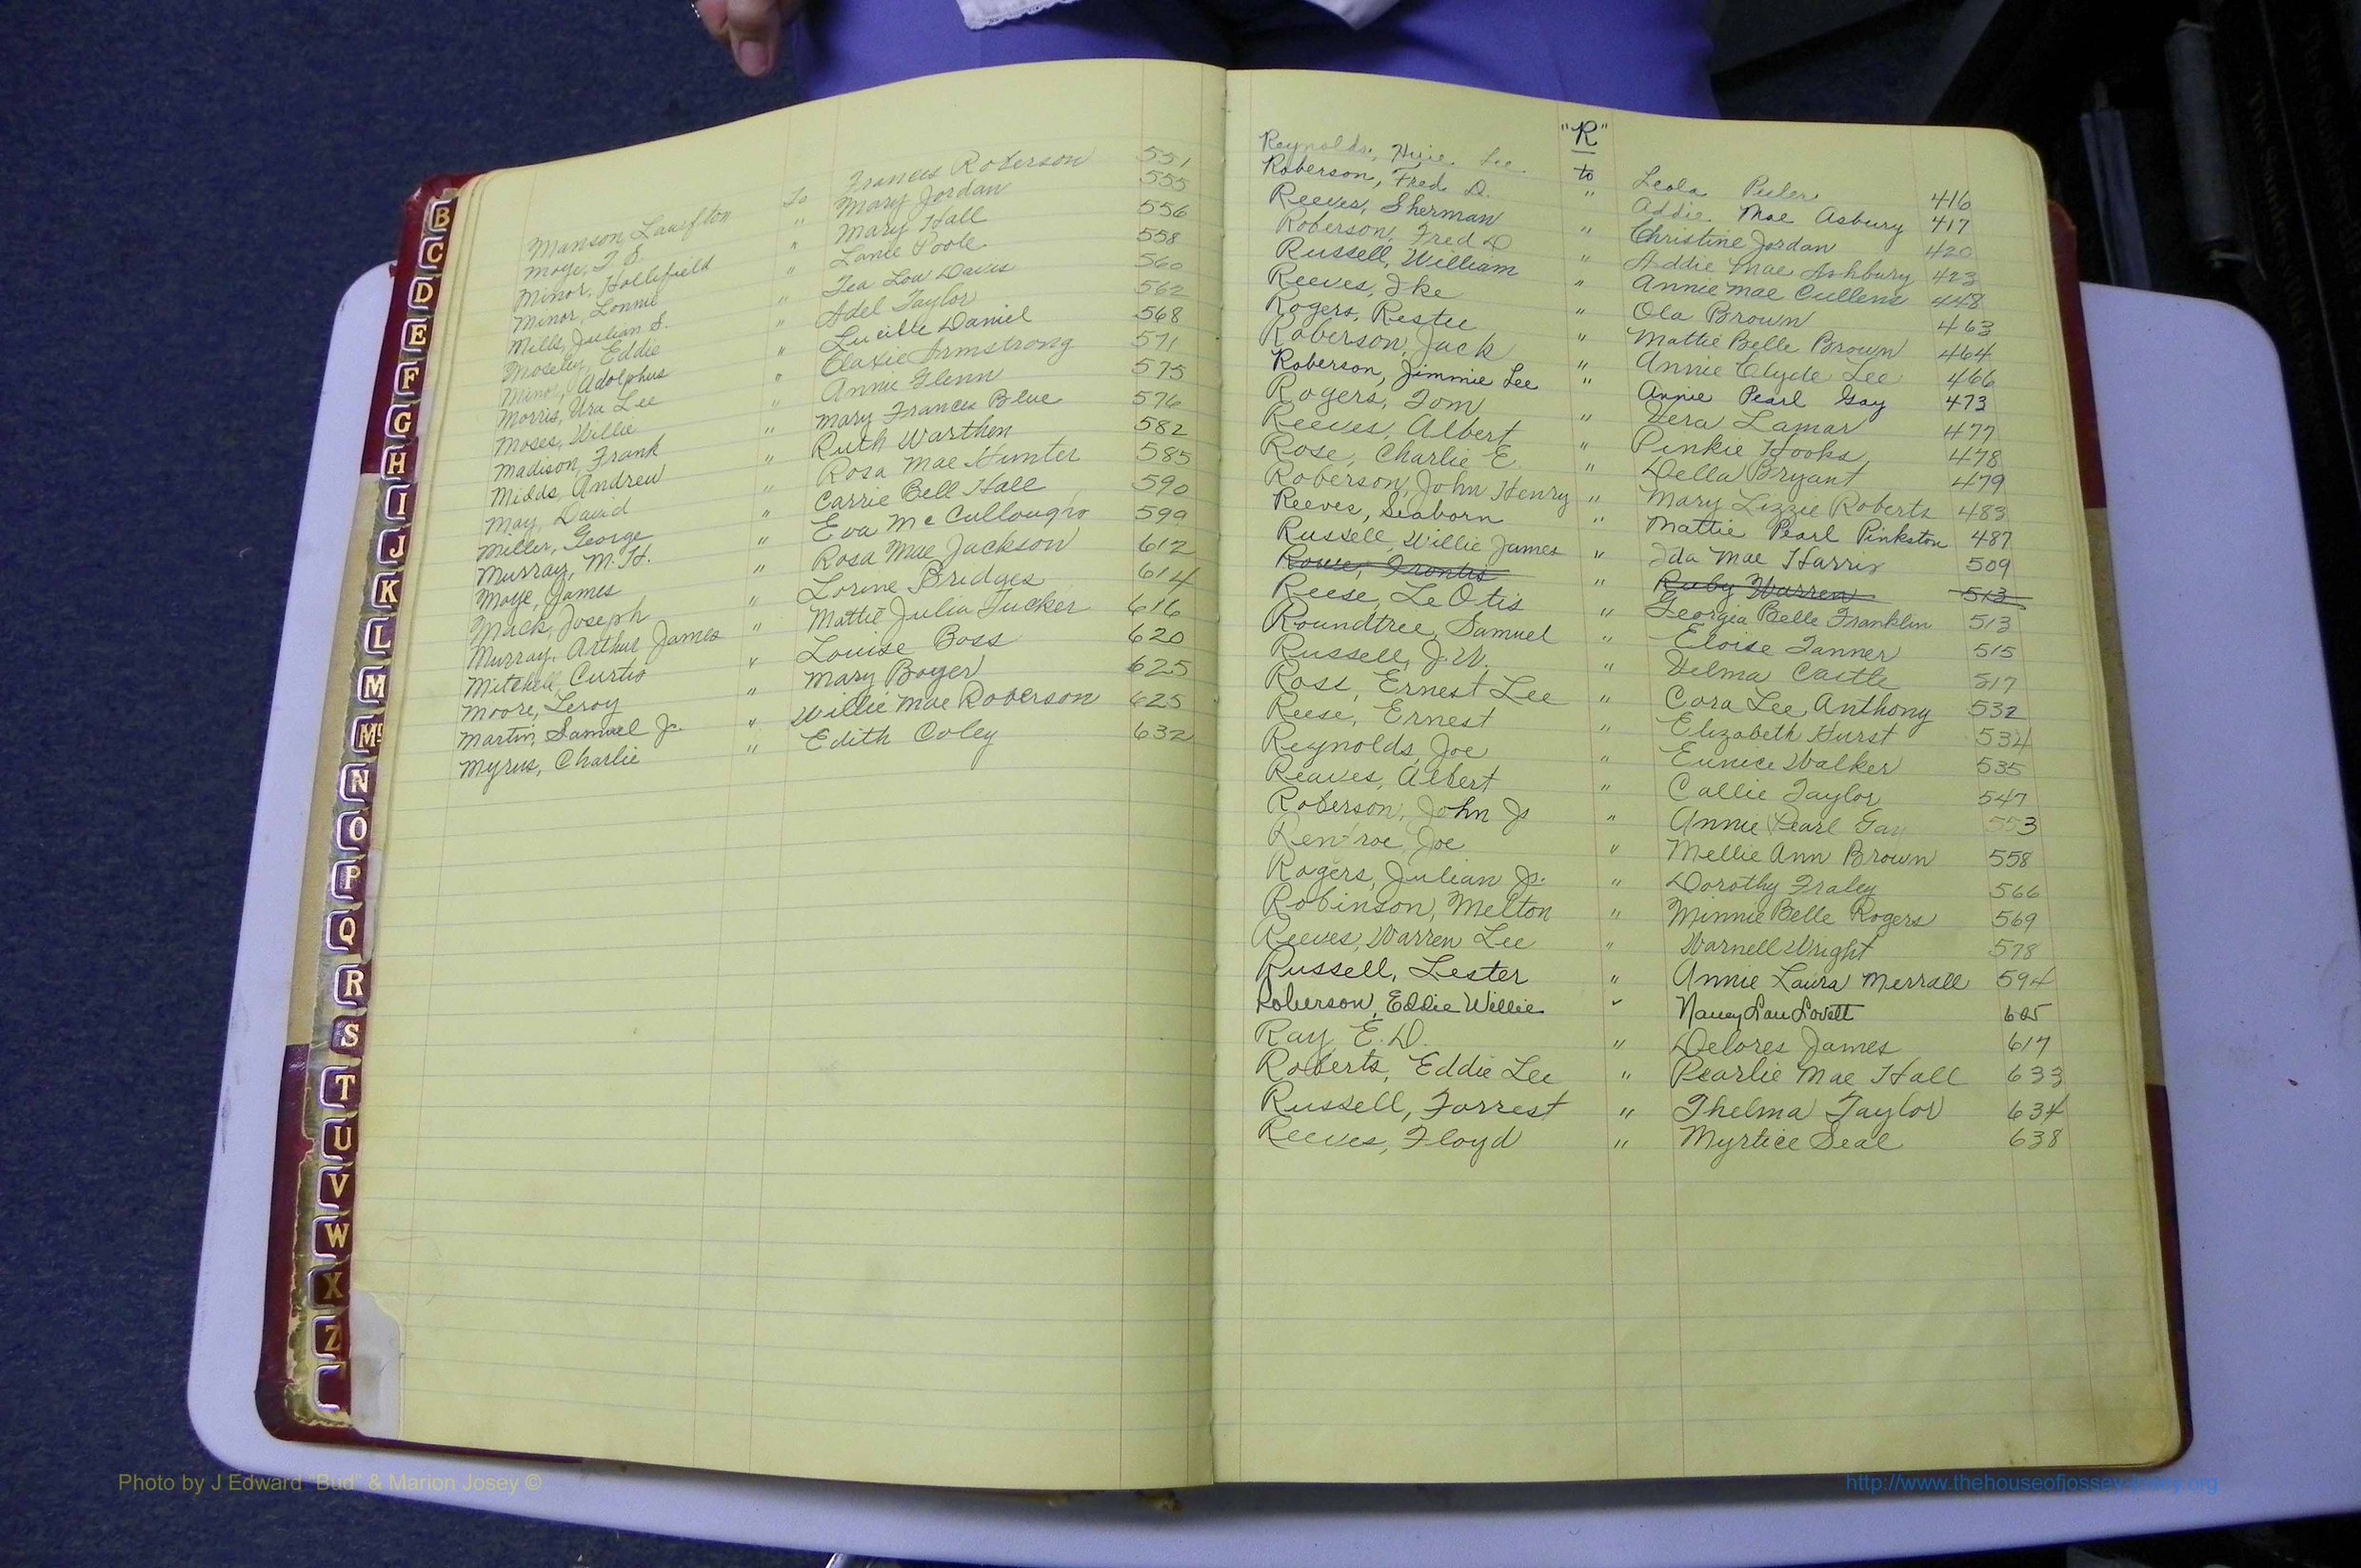 Manson, Lawfton To Frances Roberson 551
Moye, T. S. " Mary Jordan 555
Minor, Hollifield " Mary Hall 556
Minor, Lonnie " Lanie Poole 558
Mills, Julian S. " Tea Lou Davis 560
Moseley, Eddie " Adel Taylor 562
Minor, Adolphus " Lucille Daniel 568
Morris, Ura Lee " Armstrong 571
Moses, Willie " Annie Glenn 575
Madison, Frank " Mary Frances Blue 576
Midds, Andrew " Ruth Warthen 582
May, David " Rosa Mae Hunter 585
Miller, George " Carrie Bell Hall 590
Murray, M. H. " Eva McCullough 599
Moye, James " Rosa Mae Jackson 612
Mack, Joseph " Lorine Bridges 614
Murray, Arthur James " Mattie Julia Tucker 616
Mitchell, Curtis " Louise Boss 620
Moore, Leroy " Mary Boyer 625
Martin, Samuel Jr. " Willie Mae Roberson 625
Myrus, Charlie " Edith Coley 632
"R"
Reynolds, Lee to Leola Peeler 416
Roberson, Fred D. " Addie Mae Asbury 417
Reeves, Sherman " Christine Jordan 420
Roberson, Fred D " Addie Mae Ashbury 423
Russell, William " Annie Mae Cullens 448
Reeves, Ike " Ola Brown 463
Rogers, Restee " Mattie Belle Brown 464
Roberson, Jack " Annie Clyde Lee 466
Roberson, Jimmie Lee " Annie Pearl Gay 473
Rogers, Tom " Vera Lamar 477
Reeves, Albert " Pinkie Hooks 478
Rose, Charlie E. " Della Bryant 479
Roberson, John Henry " Mary Lizzie Roberts 483
Reeves, Seaborn " Mattie Pearl Pinkston 487
Russell, Willie James " Ida Mae Harris 509
Rowe, Frontis " Ruby Warren 513
Reese, Le Otis " Georgia Belle Franklin 513
Roundtree, Samuel " Eloise Tanner 515
Russell, J. W. " Velma Castle 517
Ross, Ernest Lee " Cora Lee Anthony 532
Reese, Ernest " Elizabeth Hurst 534
Reynolds, Joe " Eunice Walker 535
Reaves, Albert " Callie Taylor 547
Roberson, John Jr " Annie Pearl Gay 553
Renfroe, Joe " Mellie Ann Brown 558
Rogers, Julian Jr. " Dorothy Fraley 566
Robinson, Melton " Minnie Belle Rogers 569
Reeves, Warren Lee " Warnell Wright 578
Russell, Lester " Annie Laura Merrall 594
Roberson, Eddie Willie " Nancy Lou Lovett 605
Ray, E. D. " Delores James 617
Roberts, Eddie Lee " Pearlie Mae Hall 633
Russell, Forrest " Thelma Taylor 634
Reeves, Floyd " Myrtice Seal 638
B
C
D
E
F
G
H
I
J
K
L
M
Mc
N
O
P
Q
R
S
T
U
V
W
X
Z
Photo by J Edward "Bud" & Marion Josey ©
http://www.thehouseofjossey-josey.org